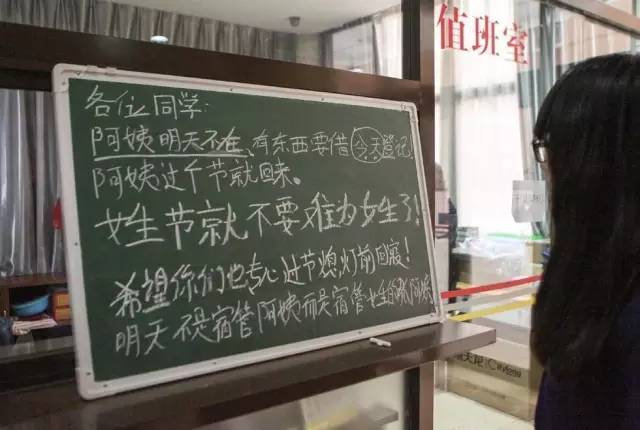 值班室
各位同学:
阿姨明天不在,有东西要借今天登记!
阿姨过个节就回来。
女生节就不要难为女生了!
希望你们也专心过节熄灯前回寝!
明天不是宿管阿姨而是宿管女生